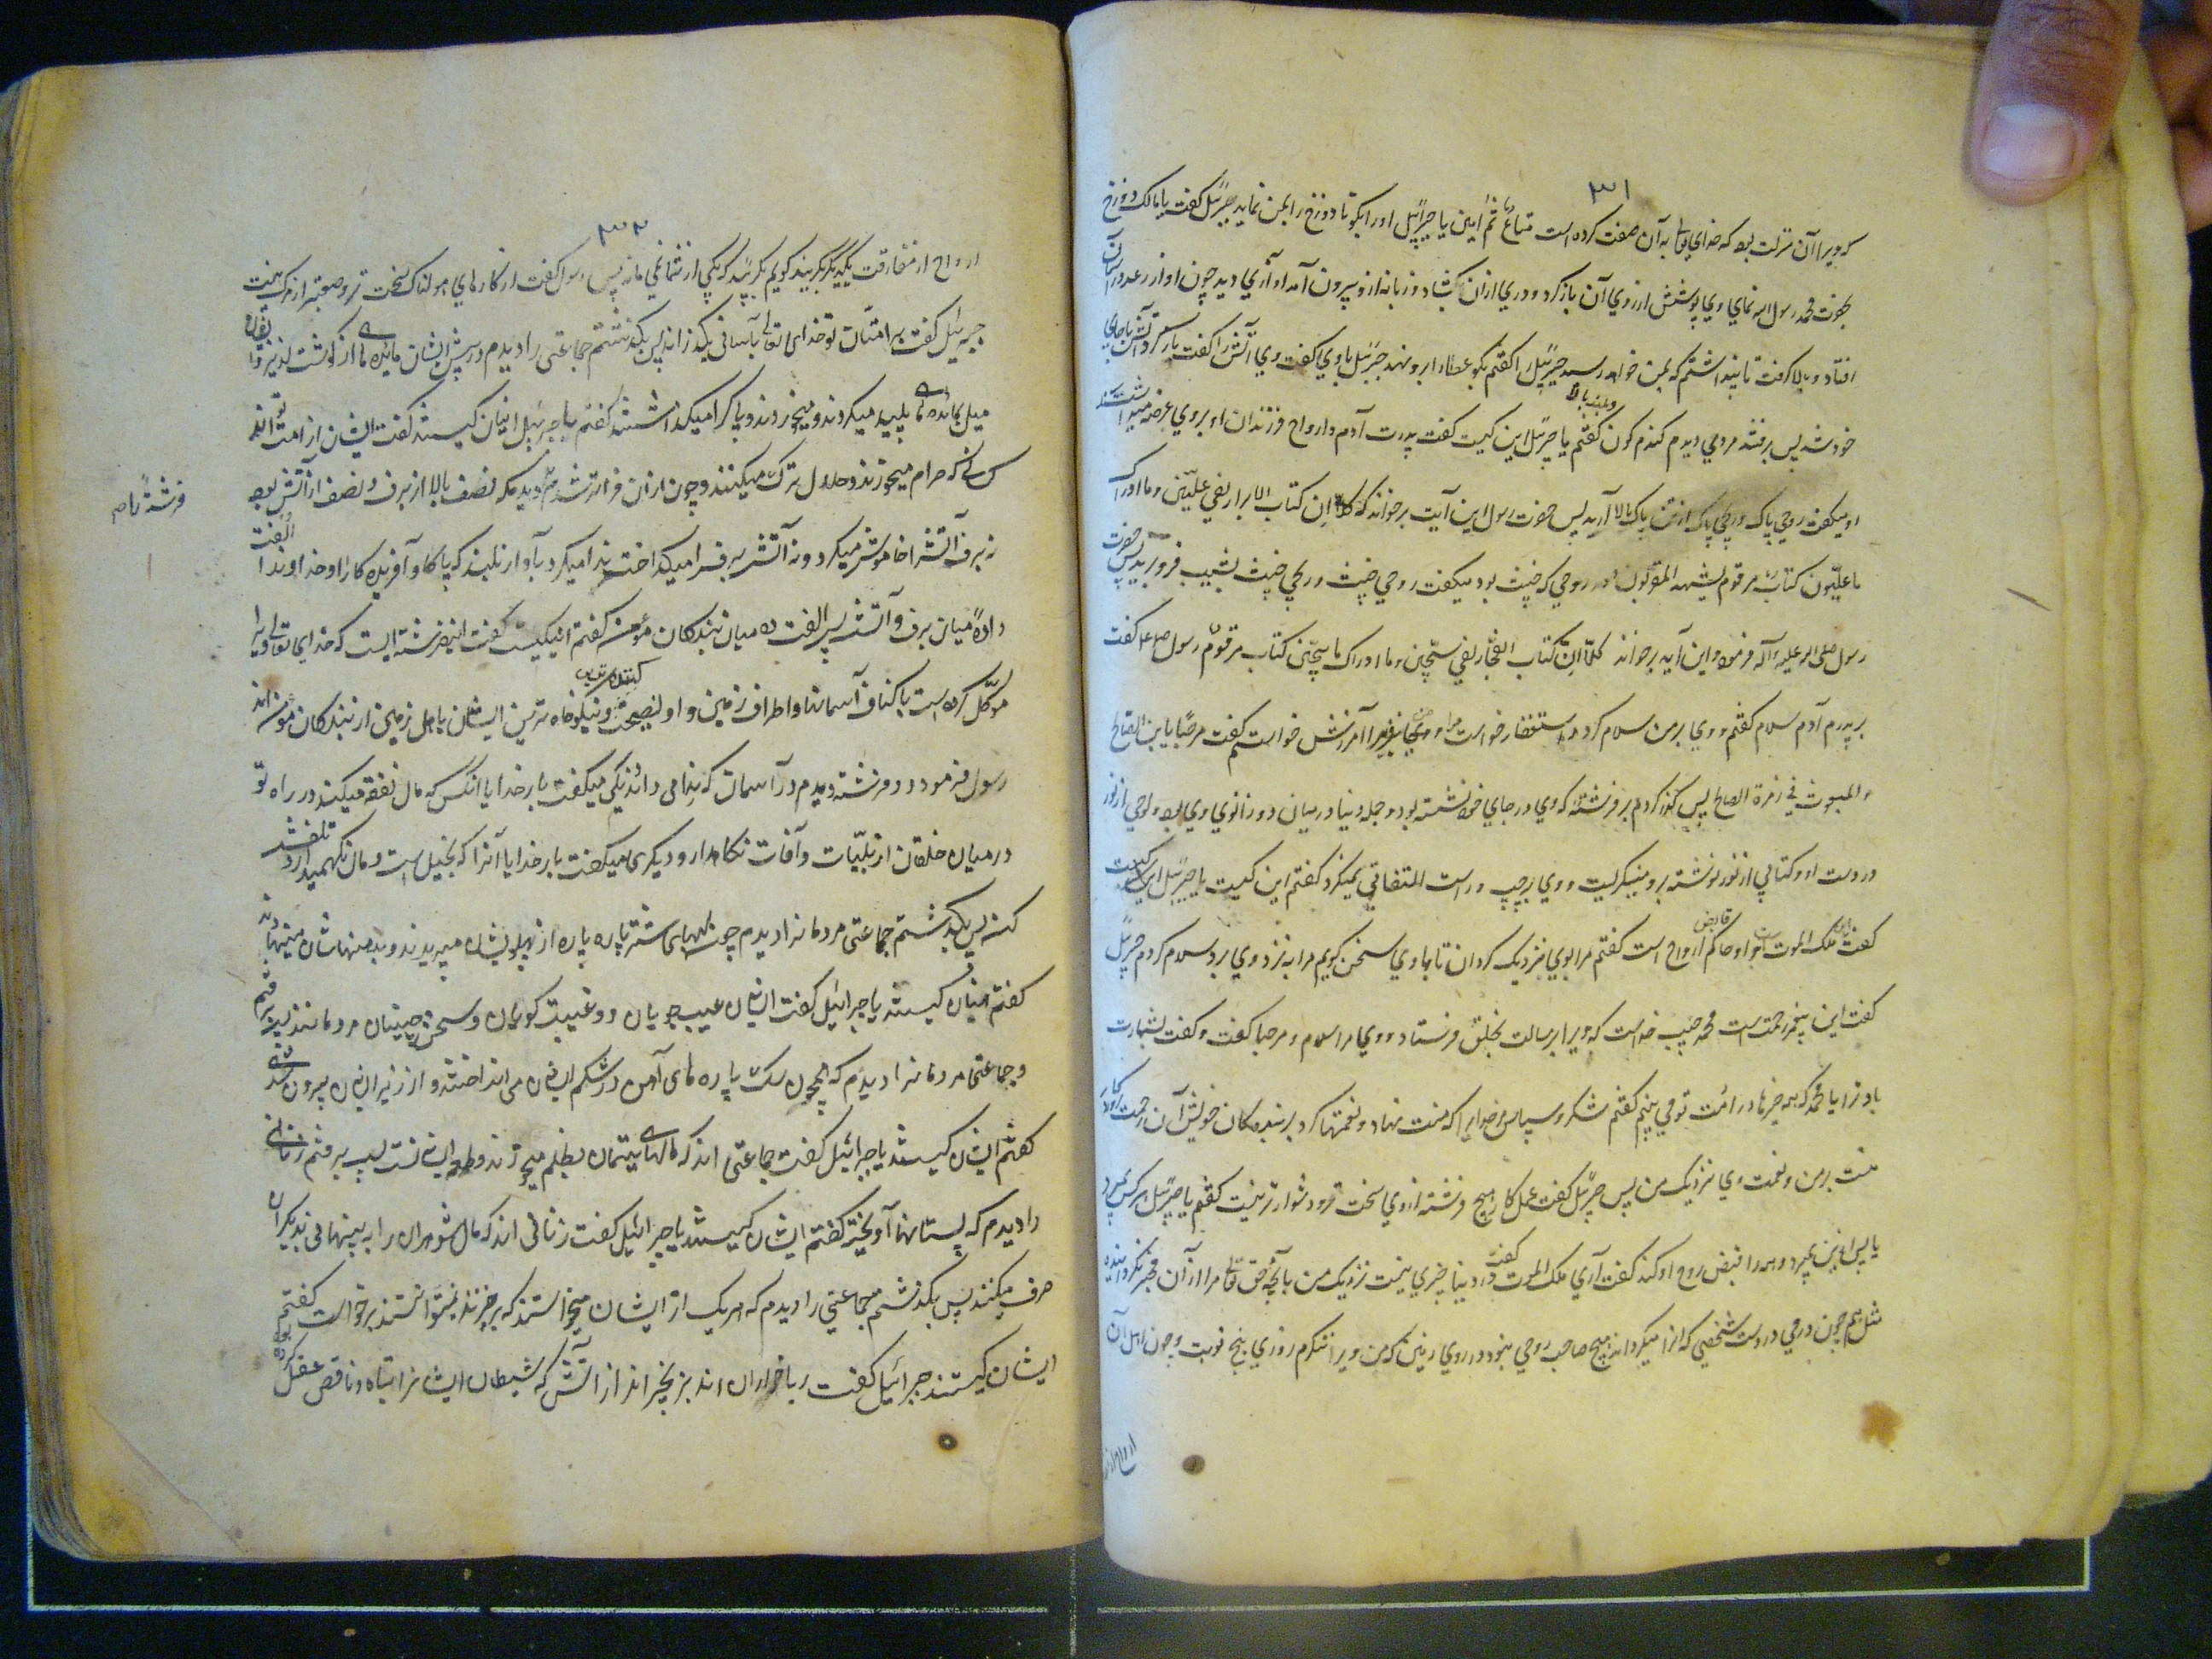 ۳۱
که ویرا آن منزلت بود که خدای تعالی به آن صفت کرده است مطاع ثم امین یا جبرئیل او را بگو تا دوزخ را بمن نماید جبرئیل گفت یا مالک دوزخ
بحضرت محمد رسول الله نمای وی پوشش از روی آن باز کرد و دری از آن بگشاد و زبانه از و بیرون آمد و آوازی دید چون آواز رعد در آسمان
افتاد و بالا گرفت تا پنداشتم که بمن خواهد رسید جبرئیل را گفتم بگو عطا را برو نهد جبرئیل با وی گفت وی آتش را گفت باز گرد آتش با جای
خود شد پس برفتند مردی دیدم گندم گون و بلند بالا گفتم یا جبرئیل این کیست گفت پدرت آدم و ارواح فرزندان او بر وی عرضه میداشتند
او میگفت روحی پاک و ریحی پاک از تن پاک بالا آرید پس حضرت رسول این آیت بر خواند که کلا ان کتاب الابرار لفی علیین و ما ادراک
ما علیون کتاب مرقوم یشهده المقربون و روحی که خبیث بود میگفت روحی خبیث و ریحی خبیث بشیب فرو برید پس حضرت
رسول صلی الله علیه و آله فرمود و این آیه بر خواند کلا ان کتاب الفجار لفی سجین و ما ادراک ما سجین کتاب مرقوم رسول صلعم گفت
بر پدرم آدم سلام گفتم و وی بر من سلام کرد و استغفار خواست مرا و وی نیز مرا آمرزش خواستم گفت مرحبا بابن الصالح
و المبعوث فی زمرة الصالح پس گذر کردم بر فرشته که وی در جای خود نشسته بود و جمله دنیا در میان دو زانوی وی بود و لوحی از نور
در دست او و کتابی از نور نوشته برو مینگریست و وی بر چپ و راست التفاتی نمیکرد گفتم این کیست یا جبرئیل
گفت ملک الموت است و او حاکم و قابض ارواح است گفتم مرا بوی نزدیک گردان تا با وی سخن گویم مرا به نزد وی برد سلام کردم جبرئیل
گفت این پیغمبر رحمتست محمد حبیب خداست که ویرا برسالت بخلق فرستاد و وی مرا سلام و مرحبا گفت و گفت بشارت
باد ترا یا محمد که همه خیرها در امت تو می بینم گفتم شکر و سپاس خدایرا که منت نهاد و نعمتها کرد بر بندگان خویش آن رحمت
منت بر من و نعمت وی نزدیک من پس جبرئیل گفت عمل کار هیچ فرشته از وی سخت تر و دشوار تر نیست گفتم یا جبرئیل هر کس بمیرد
یا پس ازین بمیرد وهمه را قبض روح او کند گفت آری ملک الموت گفت در دنیا چیزی نیست نزدیک من بآنچه حق تعالی مرا از آن مسخر گردانیده
مثل هم چون درمی در دست شخصی که آنرا میگرداند هیچ صاحب روحی نبود در روی زمین که من ویرا ننگرم روزی پنج نوبت و چون اهل آن
ارواح از
۳۲
ارواح از مفارقت یکدیگر بگریند گویم مگریید که یکی از شما نمی ماند پس رسول گفت از کارهای هولناک سخت تر و صعبتر از مرگ هست
جبرئیل گفت بر امتان تو خدای تعالی بآسانی بگذراند پس بگذشتم جماعتی را دیدم در پیش ایشان مائده های از گوشت لذیذ و ایشان
میل بمائده های پلید میکردند و میخوردند و پاک را میگذاشتند گفتم یا جبرئیل اینان کیستند گفت ایشان از امت تو اند
کسانی که حرام میخورند و حلال ترک میکنند و چون از آن فراتر شدم فرشته را دیدم که نصف بالا از برف و نصف از آتش بود
نه برف آتش را خاموش میکرد و نه آتش برف را میگداخت ندا میکرد بآواز بلند که پاکا و آفریدگارا و خداوندا الفت
داده میان برف و آتش پس الفت ده میان بندگان مؤمنه گفتم این کیست گفت این فرشته ایست که خدای تعالی ویرا
موکل کرده است باکناف آسمانها و اطراف زمین و او نصیحت کننده ترین و نیکوخواه ترین ایشان باهل زمین از بندگان مؤمنه اند
رسول فرمود دو فرشته دیدم در آسمان که ندا می دادند یکی میگفت بار خدایا آنکس که مال نفقه میکند در راه تو
در میان خلقان از بلیات و آفات نگاهدار و دیگری میگفت بار خدایا آنرا که بخیل است و مال نگهمیدارد تلفش
کنه پس بگذشتم جماعتی مردمانرا دیدم چون لبهای شتر پاره پاره از پهلویشان میبریدند و بدهنهاشان مینهادند
گفتم اینان کیستند یا جبرائیل گفت اینان عیب جویان و غیبت گویان و سخن چینان مردمانند پس برفتم
و جماعتی مردمانرا دیدم که همچون سنگ پاره های آهن در شکم ایشان می انداختند و از زیر ایشان بیرون شدی
گفتم ایشان کیستند یا جبرائیل گفت جماعتی اند که مالهای یتیمان بظلم میخورند پس برفتم زنانی
را دیدم که بپستانها آویخته گفتم ایشان کیستند یا جبرائیل گفت زنانی اند که مال شوهران را به پنهانی بدیگران
صرف میکنند پس بگذشتم جماعتی را دیدم که هر یک از ایشان میخواستند که برخیزند نمیتوانستند برخواست گفتم
ایشان کیستند جبرائیل گفت ربا خواران اند بزنجیر اند از آتش که شیطان ایشانرا تباه و ناقص عقل کرده بود
فرشته نام